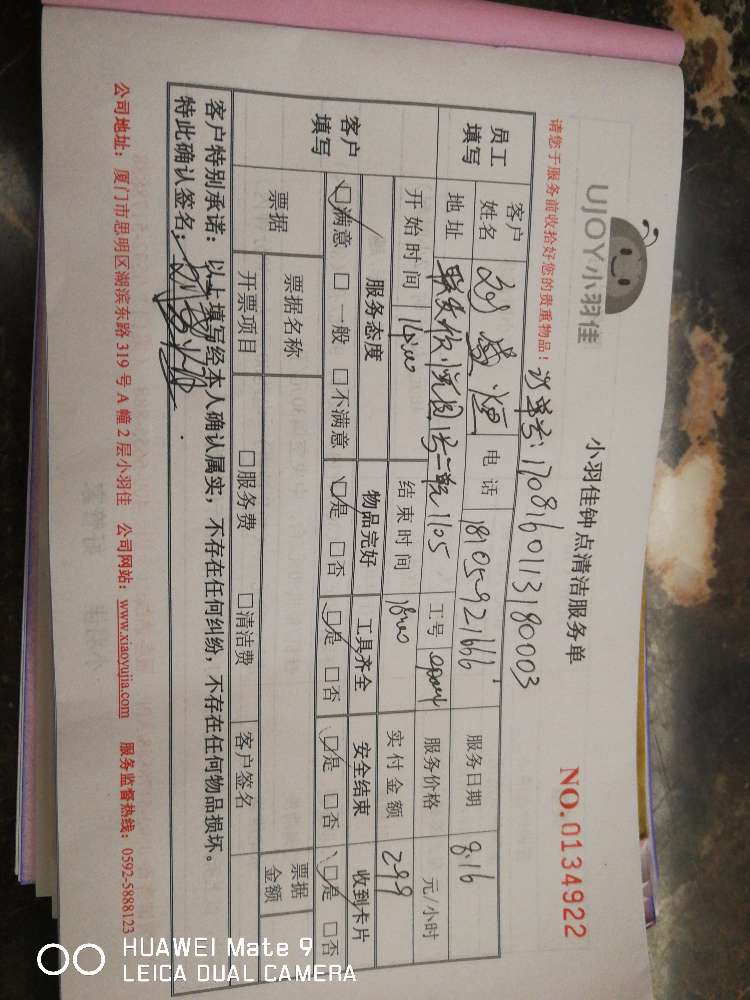 UJOY小羽佳
小羽佳钟点清洁服务单
NO.0134922
请您于服务前收拾好您的贵重物品！
1708160113180003
员工填写
客户姓名 电话 服务日期 8.16
地址 1105 工号 服务价格 元/小时
开始时间 14:00 结束时间 18:00 实付金额 299
客户填写
服务态度 物品完好 工具齐全 安全结束 收到卡片
☑满意 □一般 □不满意 ☑是 □否 ☑是 □否 ☑是 □否 ☑是 □否
票据 票据名称 票据金额
开票项目 □服务费 □清洁费 客户签名
客户特别承诺：以上填写经本人确认属实，不存在任何纠纷，不存在任何物品损坏。
特此确认签名：
公司地址：厦门市思明区湖滨东路319号A幢2层小羽佳 公司网站：www.xiaoyujia.com 服务监督热线：0592-5888123
HUAWEI Mate 9
LEICA DUAL CAMERA